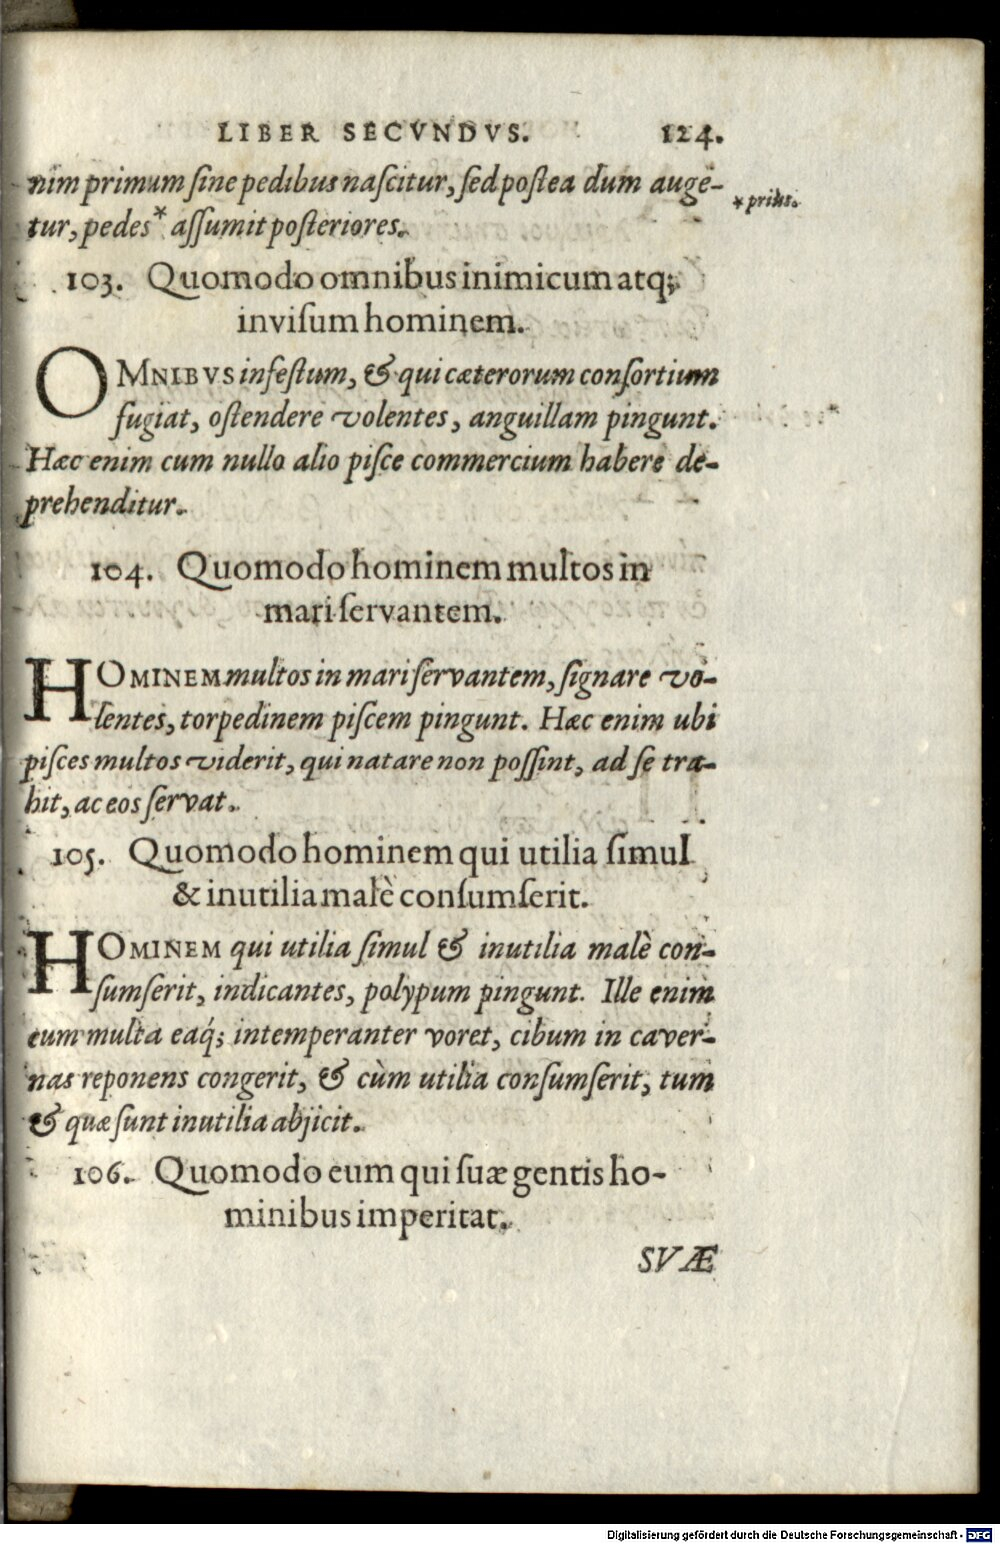 LIBER SECVNDVS. 124.
nim primum ſine pedibus naſcitur, ſed poſtea dum augē-
tur, pedes* aſſumit poſteriores.
*prius.
103. Quomodo omnibus inimicum atq;
inviſum hominem.
OMNIBVS infeſtum, & qui cæterorum conſortium
fugiat, oſtendere volentes, anguillam pingunt.
Hæc enim cum nullo alio piſce commercium habere de-
prehenditur.
104. Quomodo hominem multos in
mari ſervantem.
HOMINEM multos in mari ſervantem, ſignare vo-
lentes, torpedinem piſcem pingunt. Hæc enim ubi
piſces multos viderit, qui natare non poſſint, ad ſe tra-
hit, ac eos ſervat.
105. Quomodo hominem qui utilia ſimul
& inutilia malè conſumſerit.
HOMINEM qui utilia ſimul & inutilia malè con-
ſumſerit, indicantes, polypum pingunt. Ille enim
cum multa eaq́; intemperanter voret, cibum in caver-
nas reponens congerit, & cùm utilia conſumſerit, tum
& quæ ſunt inutilia abjicit.
106. Quomodo eum qui ſuæ gentis ho-
minibus imperitat.
SVÆ
Digitalisierung gefördert durch die Deutsche Forschungsgemeinschaft - DFG